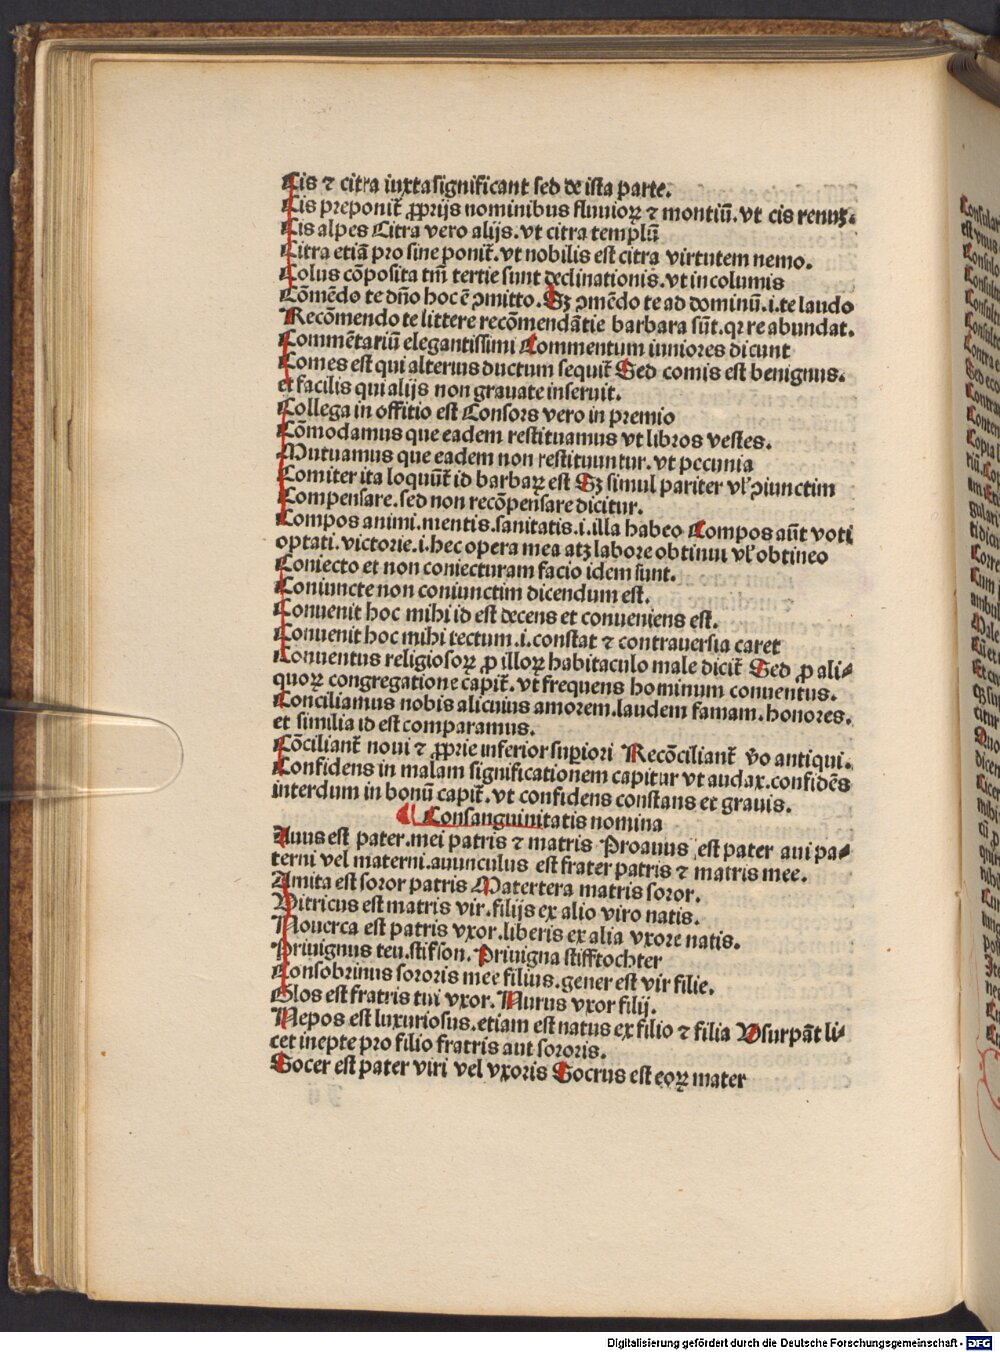 Cis ⁊ citra iuxtasignificant sed de ista parte.
Cis preponit̃ ꝓprijs nominibus fluuioꝝ ⁊ montiū. vt cis renuꝫ.
Cis alpes Citra vero alijs. vt citra templū
Citra etiā pro sine ponit̃. vt nobilis est citra virtutem nemo.
Colus cōposita tm̄ tertie sunt declinationis. vt incolumis
Cōmēdo te dño hoc ē ꝯmitto. Sꝫ ꝯmēdo te ad dominū. i. te laudo
Recōmendo te littere recōmendātie barbara sūt. qꝛ re abundat.
Commētariū elegantissimi Commentum iuniores dicunt
Comes est qui alterius ductum sequit̃ Sed comis est benignus.
et facilis qui alijs non grauate inseruit.
Collega in offitio est Consors vero in premio
Cōmodamus que eadem restituamus vt libros vestes.
Mutuamus que eadem non restituuntur. vt pecunia
Comiter ita loquūt̃ id barbaꝝ est Sꝫ simul pariter vl' ꝯiunctim
Compensare. sed non recōpensare dicitur.
Compos animi. mentis. sanitatis. i. illa habeo Compos aūt voti
optati. victorie. i. hec opera mea atꝫ labore obtinui vl' obtineo
Coniecto et non coniecturam facio idem sunt.
Coniuncte non coniunctim dicendum est.
Conuenit hoc mihi id est decens et conueniens est.
Conuenit hoc mihi tectum. i. constat ⁊ contrauersia caret
Conuentus religiosoꝝ ꝓ illoꝝ habitaculo male dicit̃ Sed ꝓ ali⸗
quoꝝ congregatione capit̃. vt frequens hominum conuentus.
Conciliamus nobis alicuius amorem. laudem famam. honores.
et similia id est comparamus.
Cōciliant̃ noui ⁊ ꝓprie inferior suꝑiori Recōciliant̃ v̄o antiqui.
Confidens in malam significationem capitur vt audax. confidēs
interdum in bonū capit̃. vt confidens constans et grauis.
¶ Consanguinitatis nomina
Auus est pater. mei patris ⁊ matris Proauus est pater aui pa⸗
terni vel materni. auunculus est frater patris ⁊ matris mee.
Amita est soror patris Matertera matris soror.
Vitricus est matris vir. filijs ex alio viro natis.
Nouerca est patris vxor. liberis ex alia vxore natis.
Priuignus teu. stifson. Priuigna stifftochter
Consobrinus sororis mee filius. gener est vir filie.
Glos est fratris tui vxor. Nurus vxor filij.
Nepos est luxuriosus. etiam est natus ex filio ⁊ filia Vsurpāt li⸗
cet inepte pro filio fratris aut sororis.
Socer est pater viri vel vxoris Socrus est eoꝝ mater
Digitalisierung gefördert durch die Deutsche Forschungsgemeinschaft - DFG